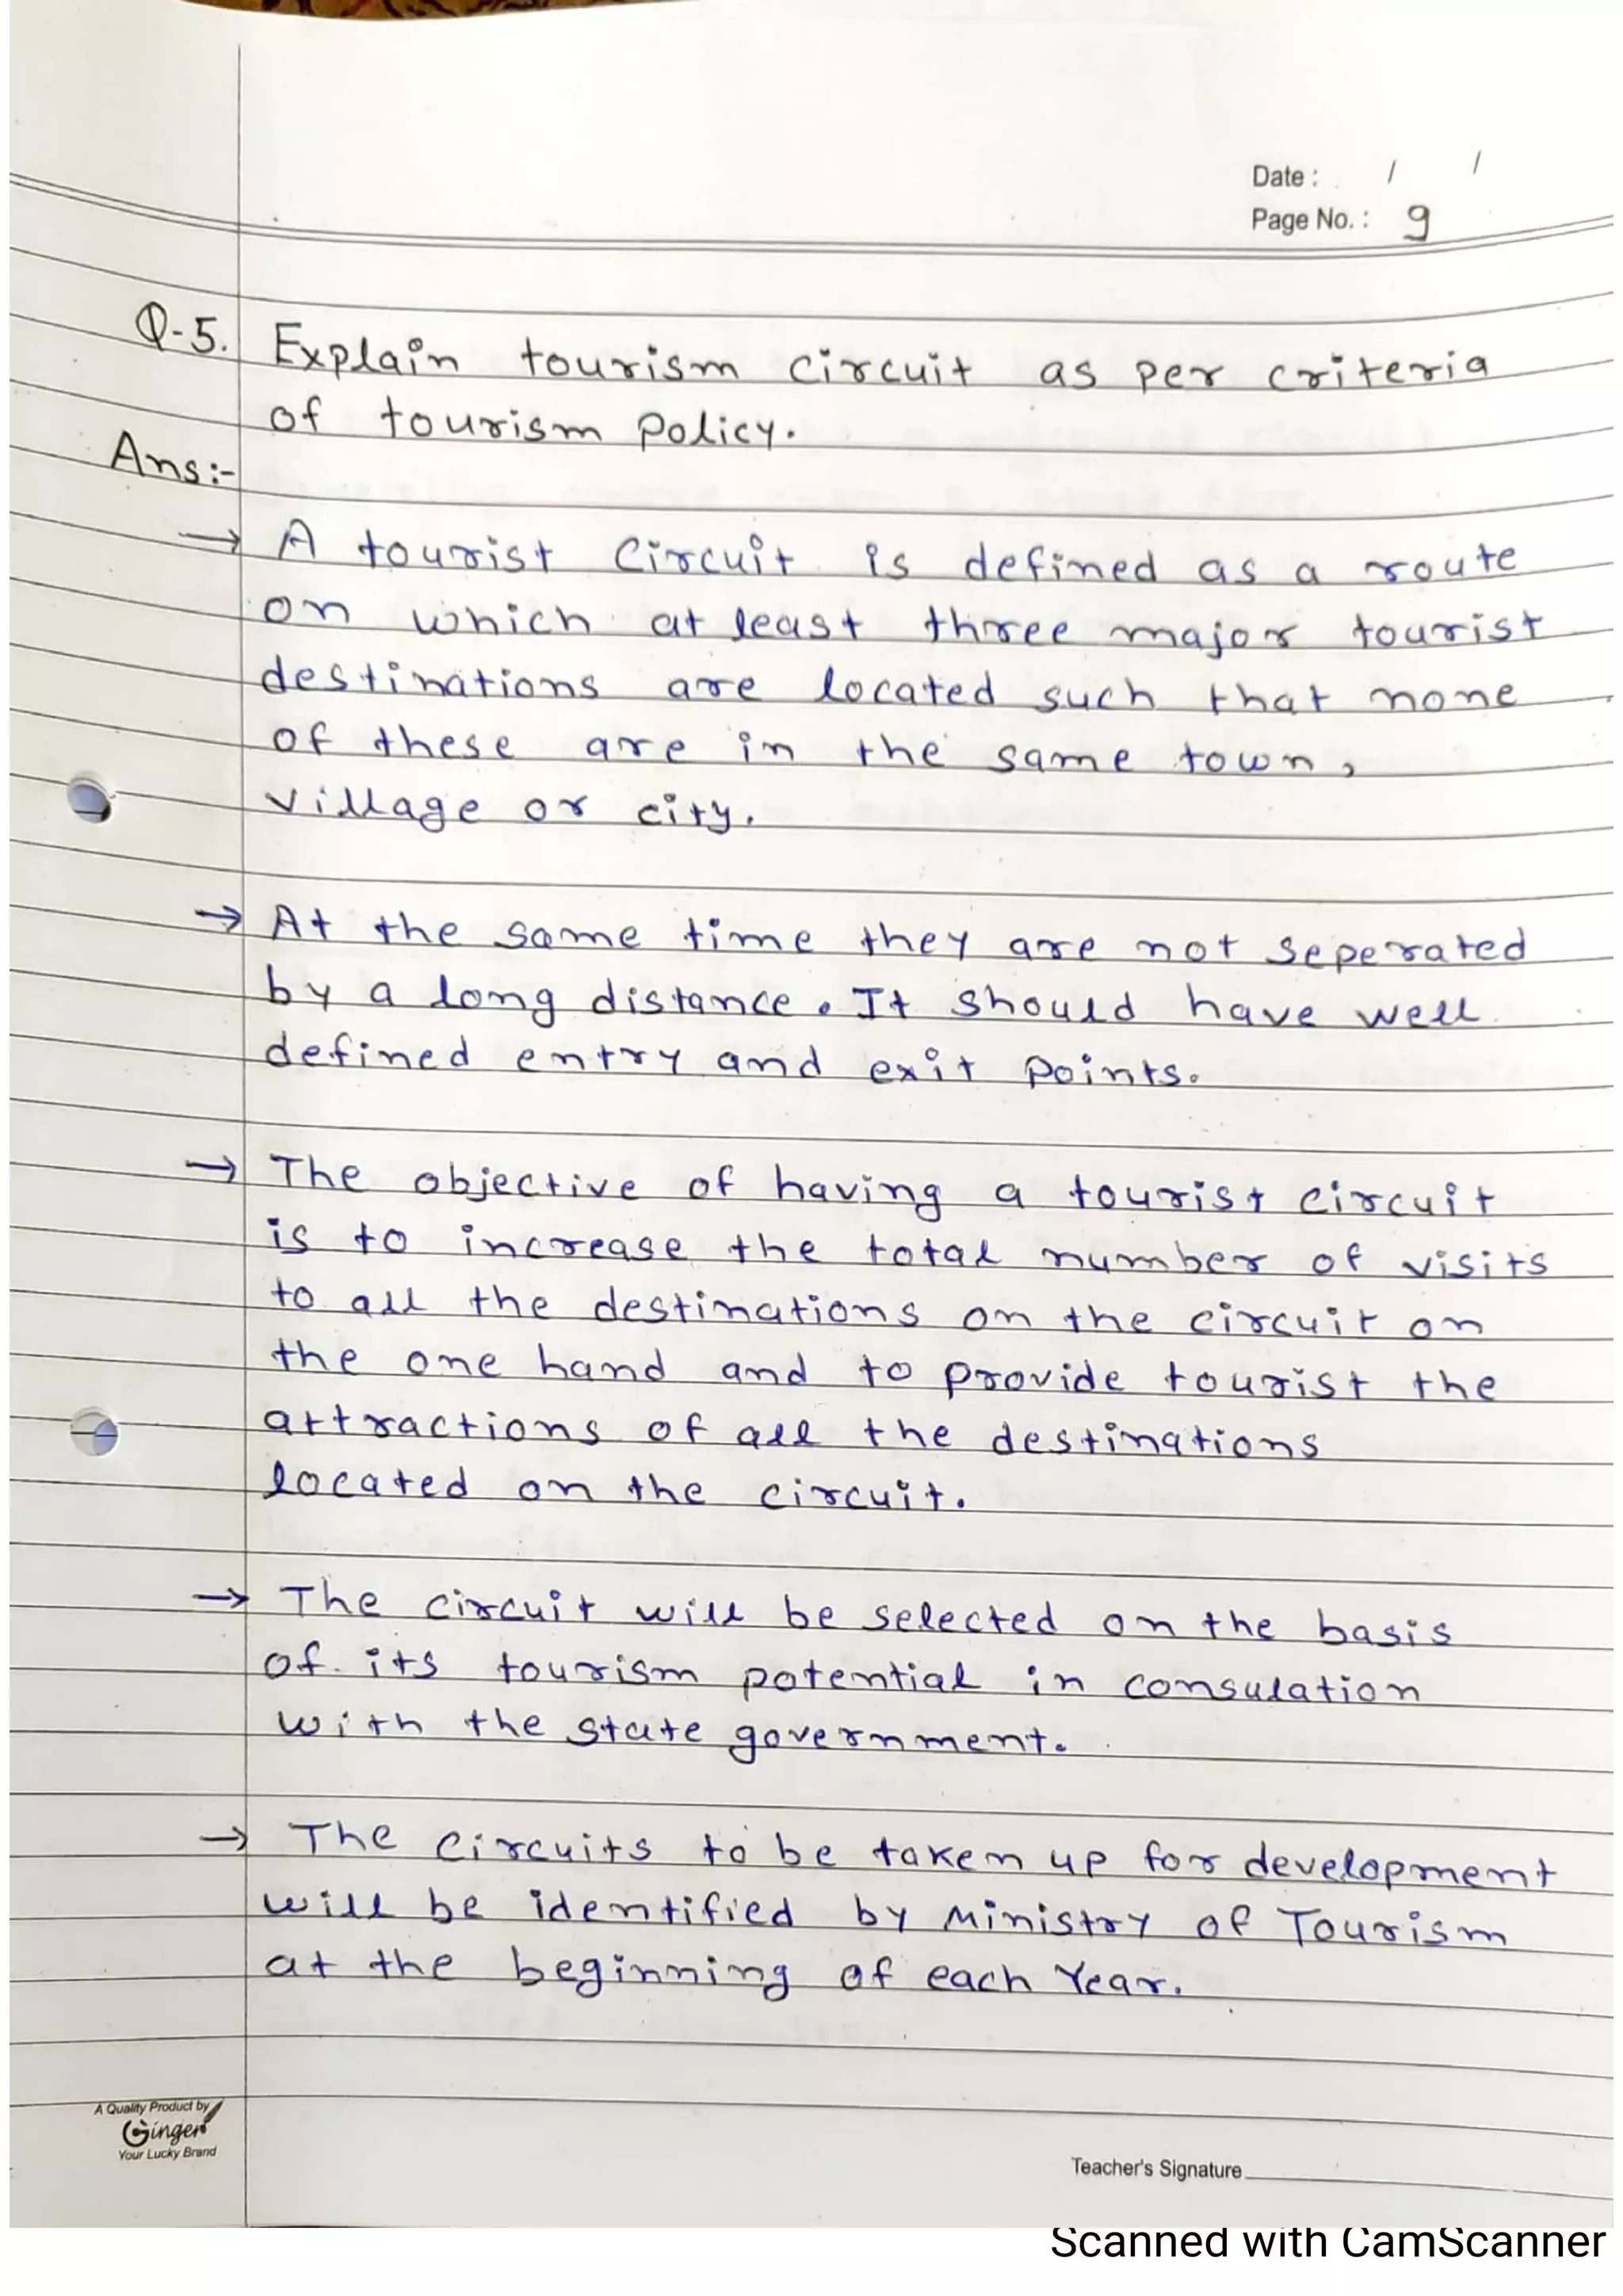 Date : / /
Page No. : 9
Q-5. Explain tourism circuit as per criteria
of tourism policy.
Ans:-
→ A tourist circuit is defined as a route
on which at least three major tourist
destinations are located such that none
of these are in the same town,
village or city.
→ At the same time they are not seperated
by a long distance. It should have well
defined entry and exit points.
→ The objective of having a tourist circuit
is to increase the total number of visits
to all the destinations on the circuit on
the one hand and to provide tourist the
attractions of all the destinations
located on the circuit.
→ The circuit will be selected on the basis
of its tourism potential in consulation
with the state government.
→ The circuits to be taken up for development
will be identified by Ministry of Tourism
at the beginning of each Year.
A Quality Product by
Ginger
Your Lucky Brand
Teacher's Signature
Scanned with CamScanner